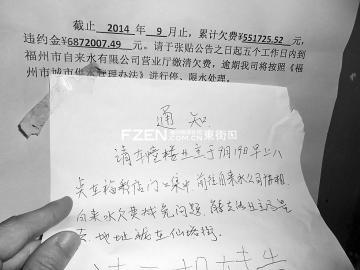 截止 2014 年 9 月止，累计欠费¥551725.52 元，
违约金¥6872007.49 元。请于张贴公告之日起五个工作日内到
福州市自来水有限公司营业厅缴清欠费，逾期我司将按照《福
州市城市供水管理办法》进行停、限水处理。
通知
FZEN.COM 東街口
请本幢楼业主于9月19日早上八
点在福彩店门口集中，前往自来水公司
自来水欠费 问题，
地址 在仙塔街